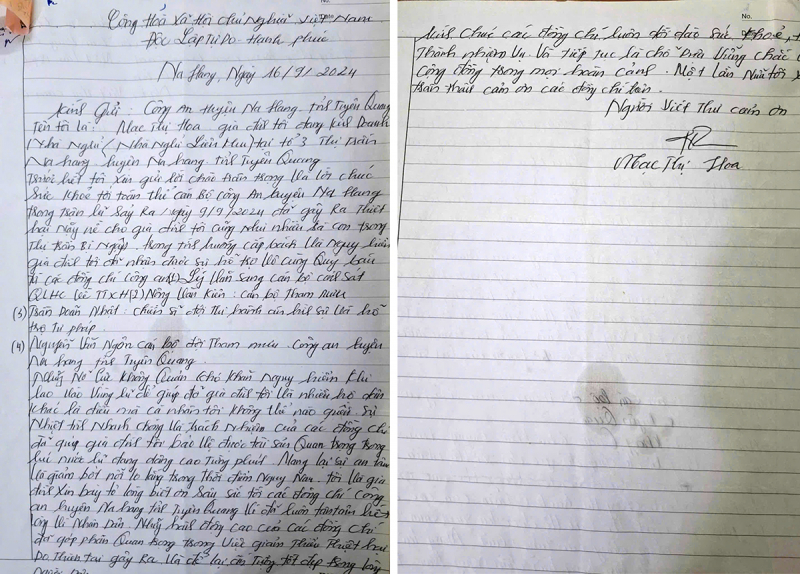 Cộng Hoà Xã Hội Chủ Nghĩa Việt Nam
Độc Lập Tự Do - Hạnh phúc
Na Hang, Ngày 16/9/2024
Kính Gửi: Công An huyện Na Hang. tỉnh Tuyên Quang
Tên tôi là: Mac Thị Hoa gia đình tôi đang kinh Doanh
Nhà Nghỉ/ Nhà Nghỉ Liên Hưu/ tại tổ 3 Thị Trấn
Na hang huyện Na hang tỉnh Tuyên Quang
Trước hết tôi xin gửi lời chào trân trọng Và lời chúc
Sức khoẻ tới toàn thể cán Bộ Công An huyện Na Hang
trong trận lũ Sảy Ra ngày 9/9/2024 đã gây Ra Thiệt
hại Nặng nề cho gia đình tôi cũng như nhiều bà con trong
Thị trấn Bị Ngập. trong tình huống cấp bách Và Nguy hiểm
gia đình tôi đã nhận được sự hỗ trợ Vô cùng Quý báu
từ các đồng chí công an (1) Lý Văn Sang cán bộ cảnh sát
QLHC Về TTXH (2) Nông Văn Kiên: cán bộ Tham Mưu
(3) Trần Doãn Nhật. chiến sĩ đội Thi hành án hình sự Và hỗ
trợ Tư pháp.
(4) Nguyễn Văn Ngôn cán bộ đội Tham mưu. Công an huyện
Na hang tỉnh Tuyên Quang.
Những Nỗ lực không Quản khó khăn Nguy hiểm khi
lao Vào Vùng lũ để giúp đỡ gia đình tôi Và nhiều hộ dân
khác là điều mà cá nhân tôi không thể nào quên. sự
Nhiệt tình Nhanh chóng Và trách Nhiệm của các đồng chí
đã giúp gia đình tôi bảo Vệ được tài sản Quan trọng trong
khi nước lũ đang dâng cao Từng phút. Mang lại sự an tâm
Và giảm bớt nỗi lo lắng trong Thời điểm Nguy Nan. tôi Và gia
đình Xin bày tỏ lòng biết ơn Sâu sắc tới các đồng chí Công
an huyện Na hang tỉnh Tuyên Quang Vì đã luôn tận tâm hết
lòng Vì Nhân Dân. Những hành động cao cả của các đồng chí
đã góp phần Quan trọng trong Việc giảm Thiểu Thiệt hại
Do Thiên tai gây Ra Và để lại ấn Tượng tốt đẹp trong lòng
Người Dân
No.
Kính Chúc các đồng chí luôn dồi dào sức khoẻ,
Thành nhiệm Vụ. Và tiếp tục là chỗ Dựa Vững chắc
Cộng đồng trong mọi hoàn cảnh. Một Lần Nữa tôi
trân thành cảm ơn các đồng chí
Người Viết Thư cảm ơn
Mac Thị Hoa